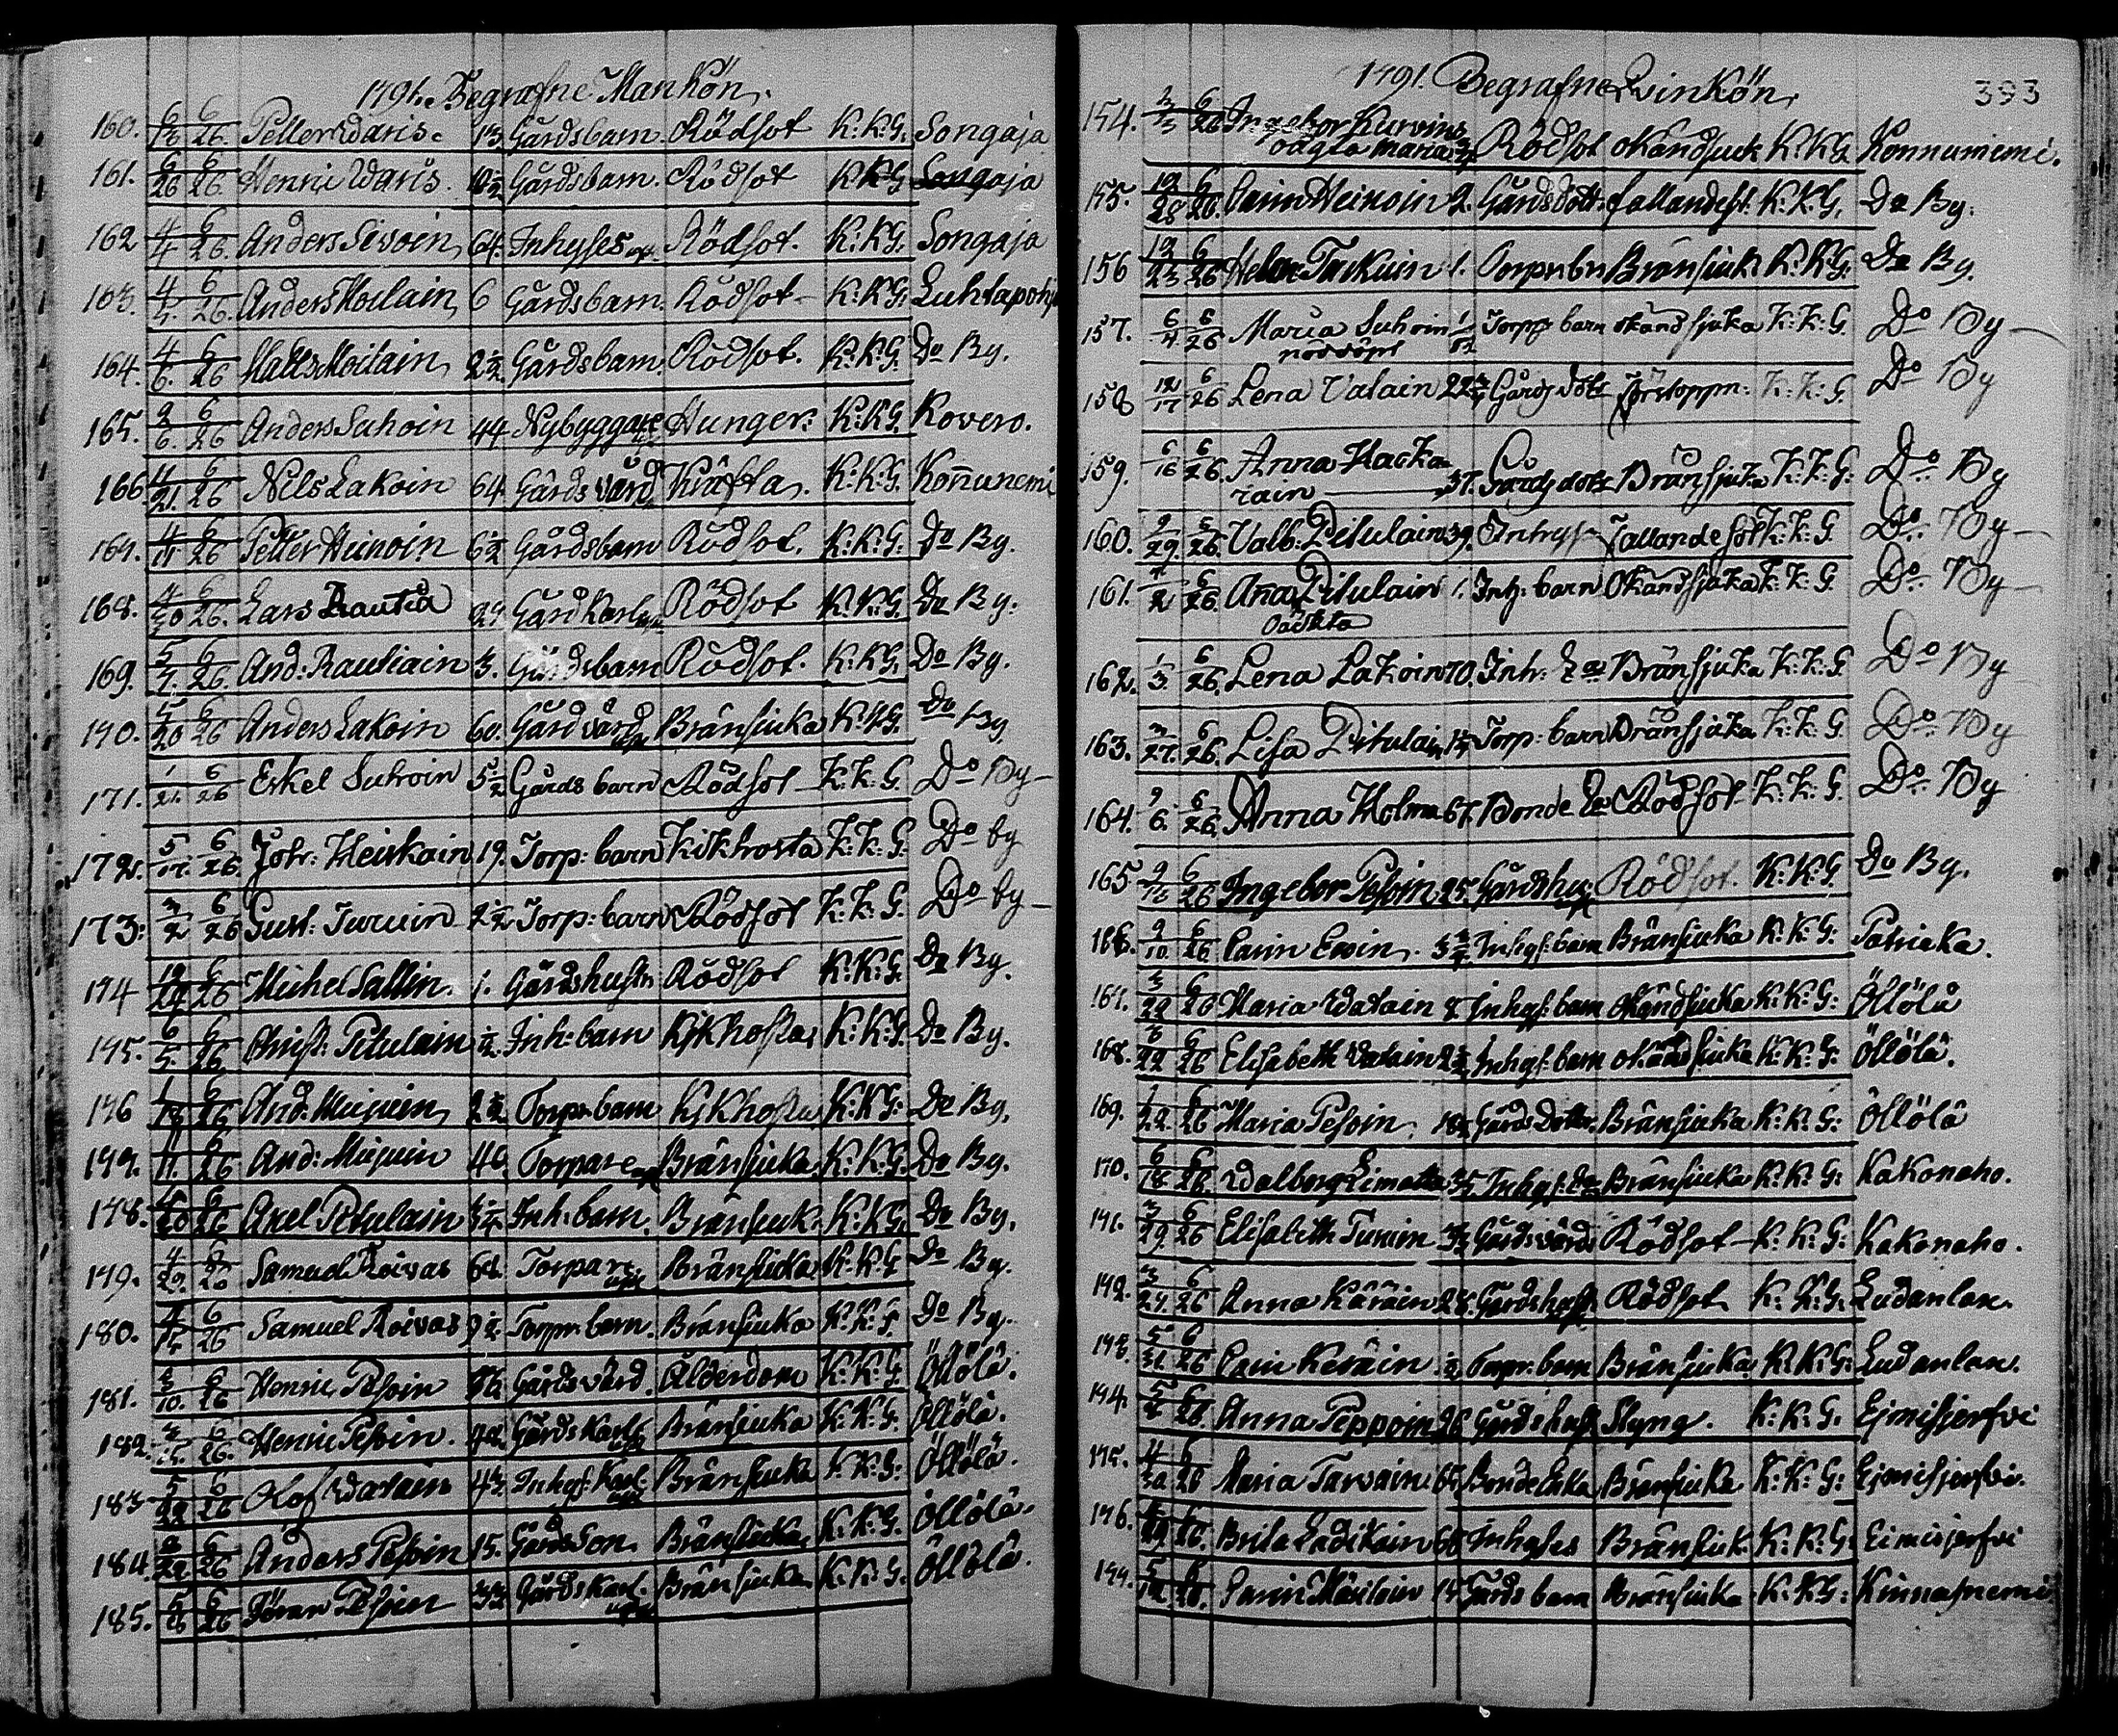 1791. Begrafne Mankön.
160. 6/13 6/26. Petter Waris. 13. Gårdsbarn. Rödsot K: K: G: Songaja
161. 6/26 6/26. Henric Waris. Gårdsbarn. Rödsot K K G Songaja
162 4/4 6/26. Anders Sivoin, 64. Inhyses Rödsot. K: K G: Songaja
163. 4/5. 6/26. Anders Moilain 6 Gårdsbarn. Rödsot K: K G: Luhtapohja
164. 4/6. 6/26 Matts Moilain, 2 1/2 Gårdsbarn. Rödsot. K: K: G: Do By.
165. 2/6. 6/26 Anders Suhoin 44 Nybyggare Hunger: K: K G: Kovero.
166 11/21. 6/26 Nils Lakoin 64. Gårdsvärd Kräfta. K: K: G: Konnunemi
167. 4/11 6/26 Petter Heinoin 6 1/2 Gårdsbarn Rödsot. K: K: G: Do By.
168. 4/30 6/26. Lars Rautia 29. Gård Karl Rödsot K: K: G. Do By.
169. 5/7. 6/26. And: Rautiain 3. Gårdsbarn Rödsot. K: K G: Do By.
170. 5/20 6/26 Anders Lakoin 60. Gårdvärd Bränsiuka K: K G: Do By
171. 1/21. 6/26 Erkel Suhoin 5 1/2 Gårds barn Rödsot K: K: G. Do By
172. 5/17. 6/26. Joh: Heiskain 19. Torp: barn Kikhosta K: K: G: Do by
173: 3/2 6/26 Gust: Turuin 2 1/2 Torp: barn Rödsot K: K: G. Do by
174 12/29 6/26 Michel Sallin. 1. Gårdshustr Rödsot K: K: G: Do By.
175. 6/5. 6/26 Christ: Pitulain Inh: barn Kikhosta K: K: G: Do By.
176 1/18 6/26 And: Miinin 2 1/2 Torpr barn Kikhosta K: K G: Do By.
177. 11/11. 6/26 And: Miinin 40. Torpare Bränsiuka K: K: G: Do By.
178. 5/20 6/26 Axel Pitulain Inh: barn. Bränsiuk: K: K G. Do By.
179. 4/29. 6/26 Samuel Roivas 62. Torpare Bränsiuka K: K: G Do By.
180. 4/15 6/26 Samuel Roivas 9 1/2 Torpr barn. Bränsiuka K: K: G. Do By.
181. 3/10. 6/26 Henric Pesoin 86. Gårdsvärd. Ålderdom K: K: G Öllölä.
182. 3/15. 6/26. Henric Pesoin. 42. Gårds Karl Bränsiuka K: K: G: Öllölä.
183 5/22 6/26 Olof Watain 43. Inhys: Karl Bränsiuka K: K: G: Öllölä.
184. 2/22 6/26 Anders Pesoin 15. Gårds Son. Bränsiuka K: K: G. Öllölä.
185. 5/26 6/26 Jöran Pesoin 33 Gårdskarl. Bränsiuka K: K: G. Öllölä.
1791. Begrafne Qvinkön. 393
154. 2/3 6/26 Ingebor Kurvins
oägta Maria Rödsot okänd siuk K: K G Konnuniemi.
155. 12/28 6/26. Carin Heinoin 2. Gårdsdott: fallandesot. K: K: G. Do By.
156 12/23 6/26 Helen Turkuin 1. Torpr bn Bränsiuk K: K: G: Do By.
157. 6/4 6/26 Maria Suhoin Torpr barn okänd sjuka K: K: G. Do By
nöddöpt
158 12/17 6/26 Lena Valain 22 Gårds Dotr förstoppn: K: K: G Do By
159. 6/16 6/26 Anna Hacka
rain 37. Gårdsdotr Bränsjuka K: K: G: Do By
160. 9/29. 6/26. Valb: Pitulain 39. Inhyse fallande sot K: K: G Do By
161. 4/2 6/26. Anna Pitulain 1. Inh: barn Okänd sjuka K: K: G. Do By
Oäckta
162. 1/3. 6/26. Lena Lakoin 70. Inh: Ea Bränsjuka K: K: G Do By
163. 3/27. 6/26. Lisa Pitulain Torp: barn Bränsjuka K: K: G Do By
164. 9/6. 6/26. Anna Holma 67. Bonde Ea Rödsot K: K: G. Do By
165 9/12 6/26 Ingebor Pesoin 25. Gårdshu: Rödsot. K: K: G. Do By.
166. 9/10. 6/26 Carin Ewin. Inhys: barn Bränsiuka K: K: G: Patricka.
167. 3/22 6/26 Maria Watain Inhys: barn Okändsiuka K: K: G: Öllölä
168. 6/22 6/26 Elisabeth Watain 2 1/2 Inhys: barn okändsiuka K: K: G: Öllölä.
169. 1/22. 6/26 Maria Pesoin. 18 Gårds Dotter. Bränsiuka K: K: G: Öllölä
170. 6/18 6/26. Walborg Limatta 35. Inhys: Bränsiuka K: K: G: Kakonaho.
171. 3/29. 6/26 Elisabeth Turuin Gårdsvärd: Rödsot K: K: G: Kakonaho.
172. 3/27. 6/26 Anna Käräin 28. Gårdshust Rödsot K: K: G: Ludanlax.
173. 5/31. 6/26 Carin Keräin Torpr barn Bränsiuka K: K: G: Ludanlax.
174. 5/5. 6/26 Anna Peppoin 26 Gårdshust Styng. K: K: G. Ejmisjerfvi
175. 4/30 6/26 Maria Tarvain 65. Bonde Enka Bränsiuka K: K: G: Ejmisjerfvi.
176. 6/26. Brita Ladikain 68 Inhyses Bränsiuk. K: K: G: Eimisjerfvi
177. 5/12 6/26. Carin Määtäin Gårds barn Bränsiuka K: K G: Kinnasnemi